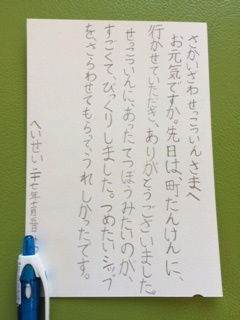 さかいざわせっこついんさまへ
お元気ですか。先日は、町たんけんに、
行かせていただき、ありがとうございました。
せっこついんに、あったてつぼうみたいのが、
すごくて、びっくりしました。つめたいシップ
を、さわらせてもらって、うれしかったです。
へいせい二七年十月